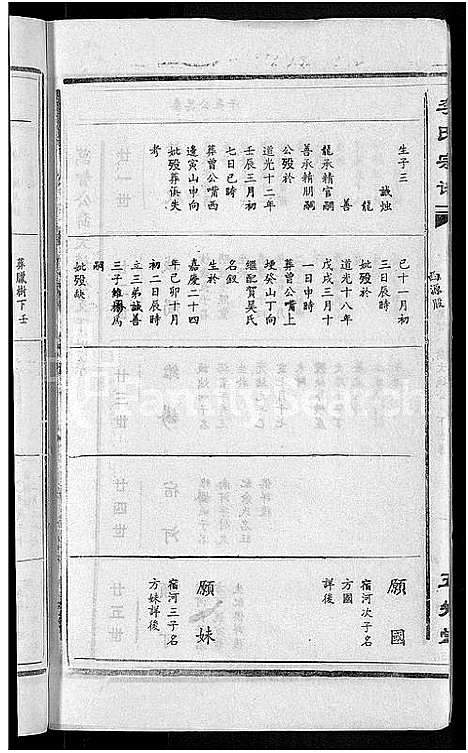 李氏宗譜
西源派
生子三
誠燭
龍
善
龍承精官嗣
善承精朋嗣
公殁於
道光十二年
壬辰三月初
七日巳時
葬曾公嘴西
邊寅山申向
妣殁葬俱失
考
已十一月初
三日辰時
妣殁於
道光十八年
戊戌三月十
一日申時
葬曾公嘴上
埂癸山丁向
繼配賀吴氏
名釵
生於
嘉慶二十四
年己卯十月
初二日辰時
立三弟誠善
三子維楊為
嗣
妣殁缺
葬臘樹下壬
願國
宿河次子名
方國
詳後
願妹
宿河三子名
方妹詳後
FamilySearch